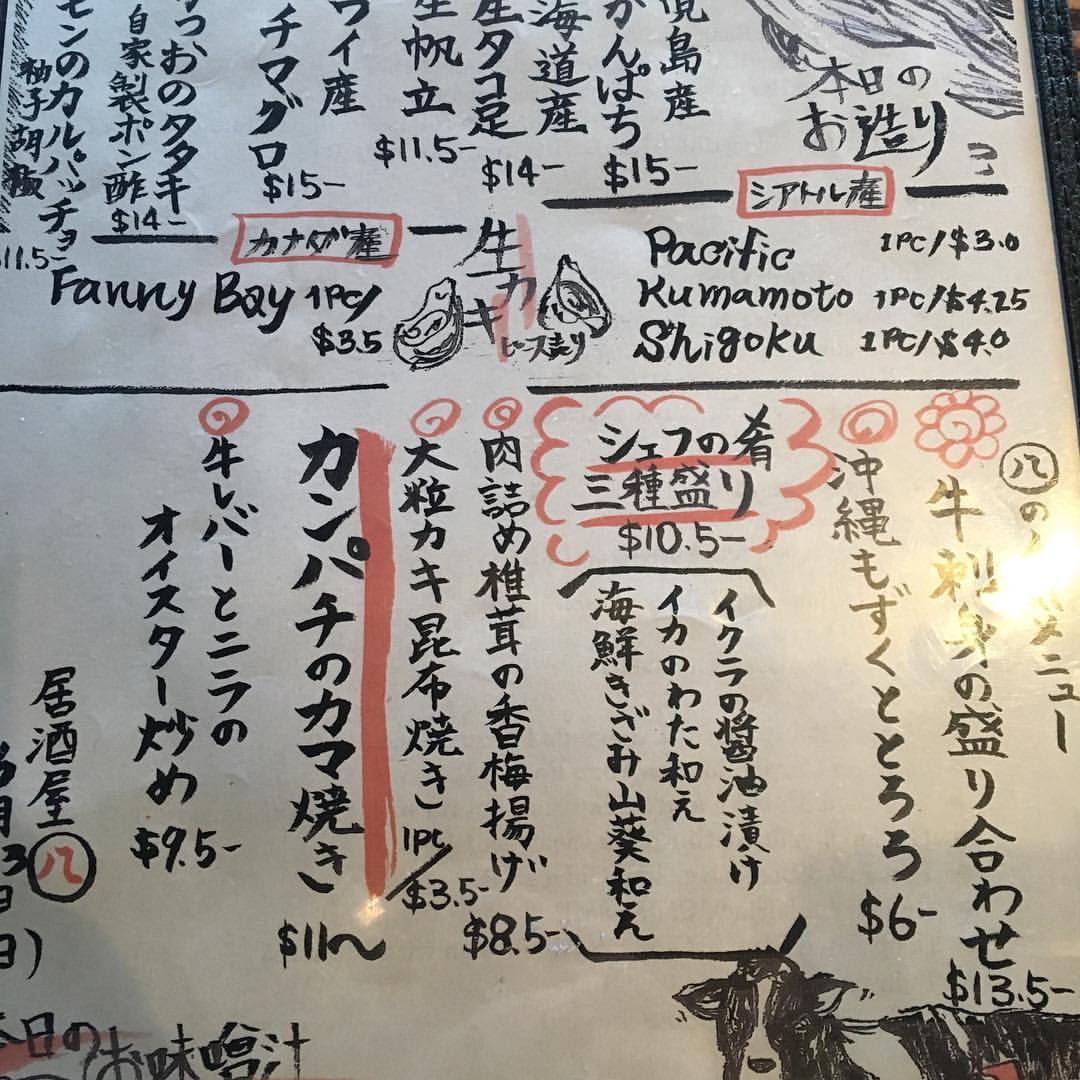 本日の
お造り
島産
かんぱち
$15-
海道産
生タコ足
$14-
生帆立
$11.5-
ワイ産
チマグロ
$15-
つおのタタキ
自家製ポン酢
$14-
モンのカルパッチョ
柚子胡椒
11.5-
シアトル産
Pacific 1PC/$3.0
Kumamoto 1PC/$4.25
Shigoku 1PC/$4.0
生カキ
ピース売り
カナダ産
Fanny Bay 1PC/
$3.5
八の
ニュー
牛刺身の盛り合わせ
$13.5-
沖縄もずくととろろ
$6-
シェフの肴
三種盛り
$10.5-
イクラの醤油漬け
イカのわた和え
海鮮きざみ山葵和え
肉詰め椎茸の香梅揚げ
$8.5-
大粒カキ昆布焼き
1PC/$3.5-
カンパチのカマ焼き
$11〜
牛レバーとニラの
オイスター炒め
$9.5-
居酒屋八
月3日
日)
本日の
お味噌汁